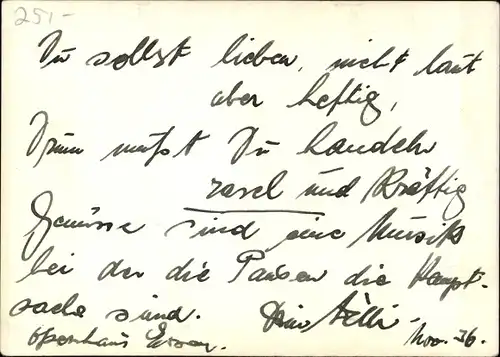 251-
Du sollst lieben, nicht laut
aber heftig,
Drum mußt Du handeln
rasch und kräftig
Genüsse sind eine Musik
bei der die Pausen die Haupt-
sache sind. Dein Willi -
Opernhaus Essen. Nov. 36.